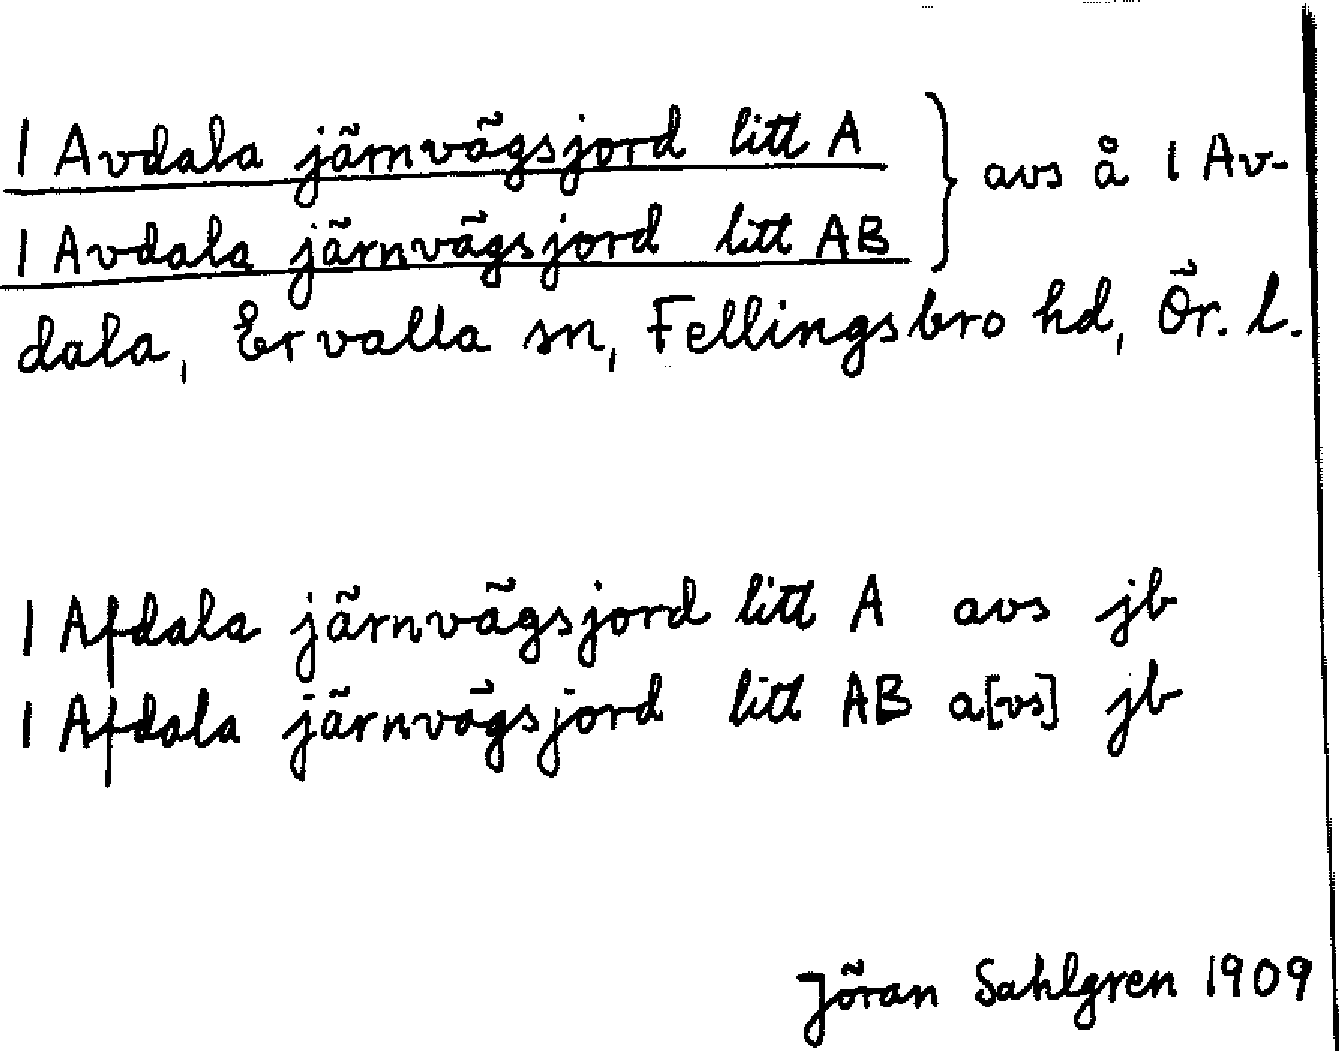 1 Avdala järnvägsjord litt A } avs å 1 Av-
1 Avdala järnvägsjord litt AB
dala, Ervalla sn, Fellingsbro hd, Ör. l.
1 Afdala järnvägsjord litt A avs jb
1 Afdala järnvägsjord litt AB a[vs] jb
Jöran Sahlgren 1909